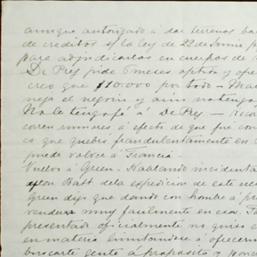 aunque autorizado á dar terrenos ba
de creditos s/ la ley de 22 de Junio p
para adjudicarlos en cuerpos de
De Prez pide 6 meses option y ofre
creo que $10.000 por todo
neja el negocio y aun no tengo
No le tengo fé á De Prez
corren rumores á efecto de que fue con
co que quebró fraudulentamente en
puede volver á Francia
Vuelvo á Green. Hablando incidental
con Batt de la expedicion de este
Green dijo que dando con hombre á pro
venderse muy facilmente en esa.
presentado oficialmente no quiso
en materia limitandose á ofrecerme
buscarle gente á propósito y pone